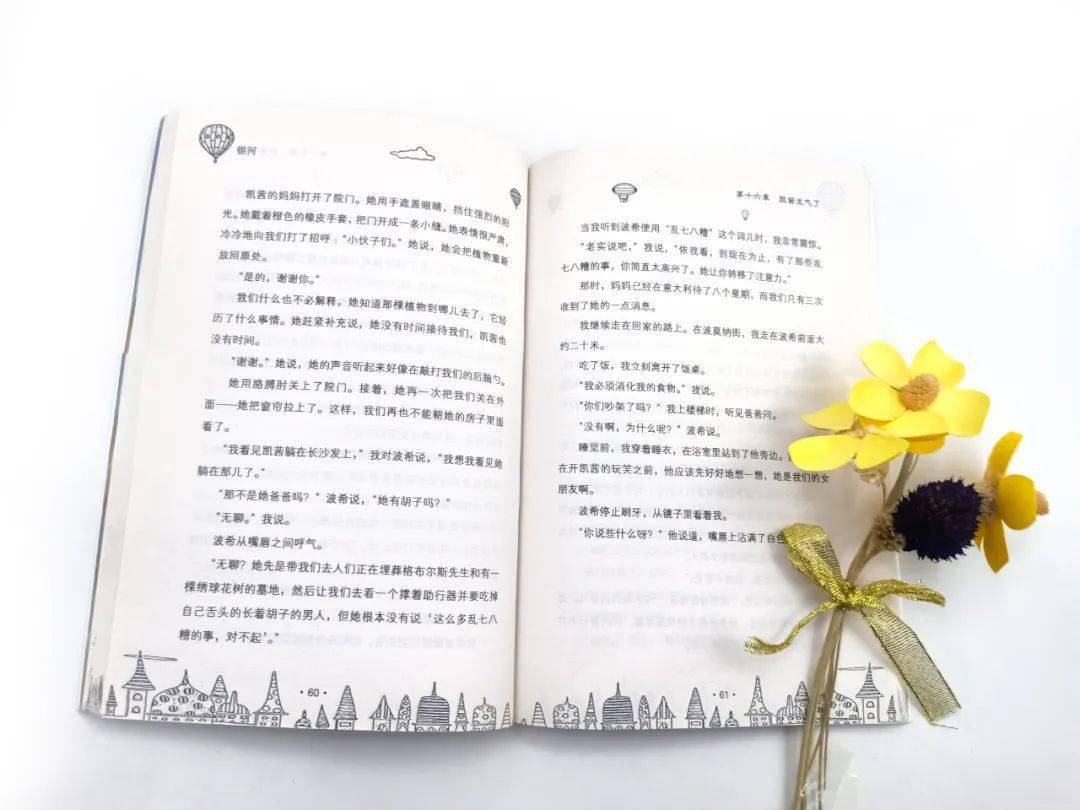 银河
凯茜的妈妈打开了院门。她用手遮盖眼睛，挡住强烈的阳
光。她戴着橙色的橡皮手套，把门开成一条小缝。她表情很严肃，
冷冷地向我们打了招呼：“小伙子们。”她说，她会把植物重新
放回原处。
“是的，谢谢你。”
我们什么也不必解释，她知道那棵植物到哪儿去了，它经
历了什么事情。她赶紧补充说，她没有时间接待我们，凯茜也
没有时间。
“谢谢。”她说，她的声音听起来好像在敲打我们的后脑勺。
她用胳膊肘关上了院门。接着，她再一次把我们关在外
面——她把窗帘拉上了。这样，我们再也不能朝她的房子里面
看了。
“我看见凯茜躺在长沙发上，”我对波希说，“我想我看见她
躺在那儿了。”
“那不是她爸爸吗？”波希说，“她有胡子吗？”
“无聊。”我说。
波希从嘴唇之间呼气。
“无聊？她先是带我们去人们正在埋葬格布尔斯先生和有一
棵绣球花树的墓地，然后让我们去看一个撑着助行器并要吃掉
自己舌头的长着胡子的男人，但她根本没有说‘这么多乱七八
糟的事，对不起’。”
·60·
第十六章 凯茜生气了
当我听到波希使用“乱七八糟”这个词儿时，我非常震惊。
“老实说吧，”我说，“依我看，到现在为止，有了那些乱
七八糟的事，你简直太高兴了。她让你转移了注意力。”
那时，妈妈已经在意大利待了八个星期，而我们只有三次
收到了她的一点消息。
我继续走在回家的路上。在波莫纳街，我走在波希前面大
约二十米。
吃了饭，我立刻离开了饭桌。
“我必须消化我的食物。”我说。
“你们吵架了吗？”我上楼梯时，听见爸爸问。
“没有啊，为什么呢？”波希说。
睡觉前，我穿着睡衣，在浴室里站到了他旁边。
在开凯茜的玩笑之前，他应该先好好地想一想，她是我们的女
朋友啊。
波希停止刷牙，从镜子里看着我。
“你说些什么呀？”他说道，嘴唇上沾满了白色
·61·